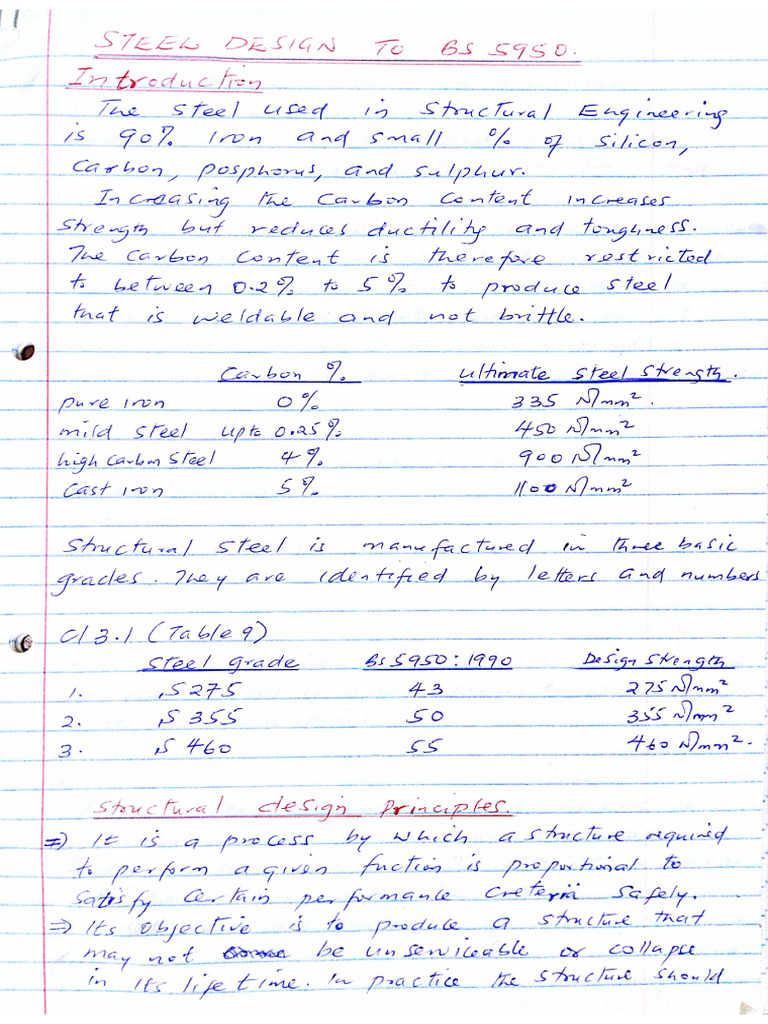 STEEL DESIGN TO BS 5950.
Introduction
The steel used in structural Engineering
is 90% iron and small % of silicon,
Carbon, posphorus, and sulphur.
Increasing the Carbon Content increases
strength but reduces ductility and toughness.
The carbon content is therefore restricted
to between 0.2% to 5% to produce steel
that is weldable and not brittle.
Carbon % Ultimate Steel Strength.
pure iron 0% 335 N/mm².
mild steel upto 0.25% 450 N/mm²
high carbon steel 4% 900 N/mm²
Cast iron 5% 1100 N/mm²
Structural steel is manufactured in three basic
grades. They are identified by letters and numbers
Cl 3.1 (Table 9)
Steel grade BS 5950:1990 Design strength
1. S 275 43 275 N/mm²
2. S 355 50 355 N/mm²
3. S 460 55 460 N/mm².
Structural design principles.
⇒ It is a process by which a structure required
to perform a given fuction is proportional to
satisfy certain performance creteria safely.
⇒ Its objective is to produce a structure that
may not be unserviceable or collapse
in its life time. In practice the structure should